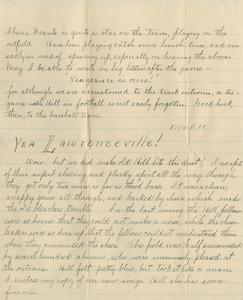 I hear Frank is quite a star on the team, playing in the
outfield. Have been playing catch since lunch time, and am
sadly in need of speeding up, especially on hearing the above.
May I be able to write in big letters after the game —
"Vengeance is ours!"
for although we are accustomed to the track victories, a tie
game with Hill in football is not easily forgotten. Good luck,
then, to the baseball team.
Yea Lawrenceville!
Wow! but we did make old Hill bite the dust! In spite
of their superb cheering and plucky spirit all the way through,
they got only two men as far as third base. It was clean,
snappy game all though, and backed by cheers which made
the old bleachers tremble. In the last inning the Hill fellows
were so hoarse that they could not make a noise, while the cheer
leaders were so done up that the fellows couldn't understand them
when they announced the cheer. The field was half surrounded
by several hundred alumni, who were immensely pleased at
the outcome. Hill felt pretty blue, but took it like a man.
I enclose my copy of our new songs. Hill also has some